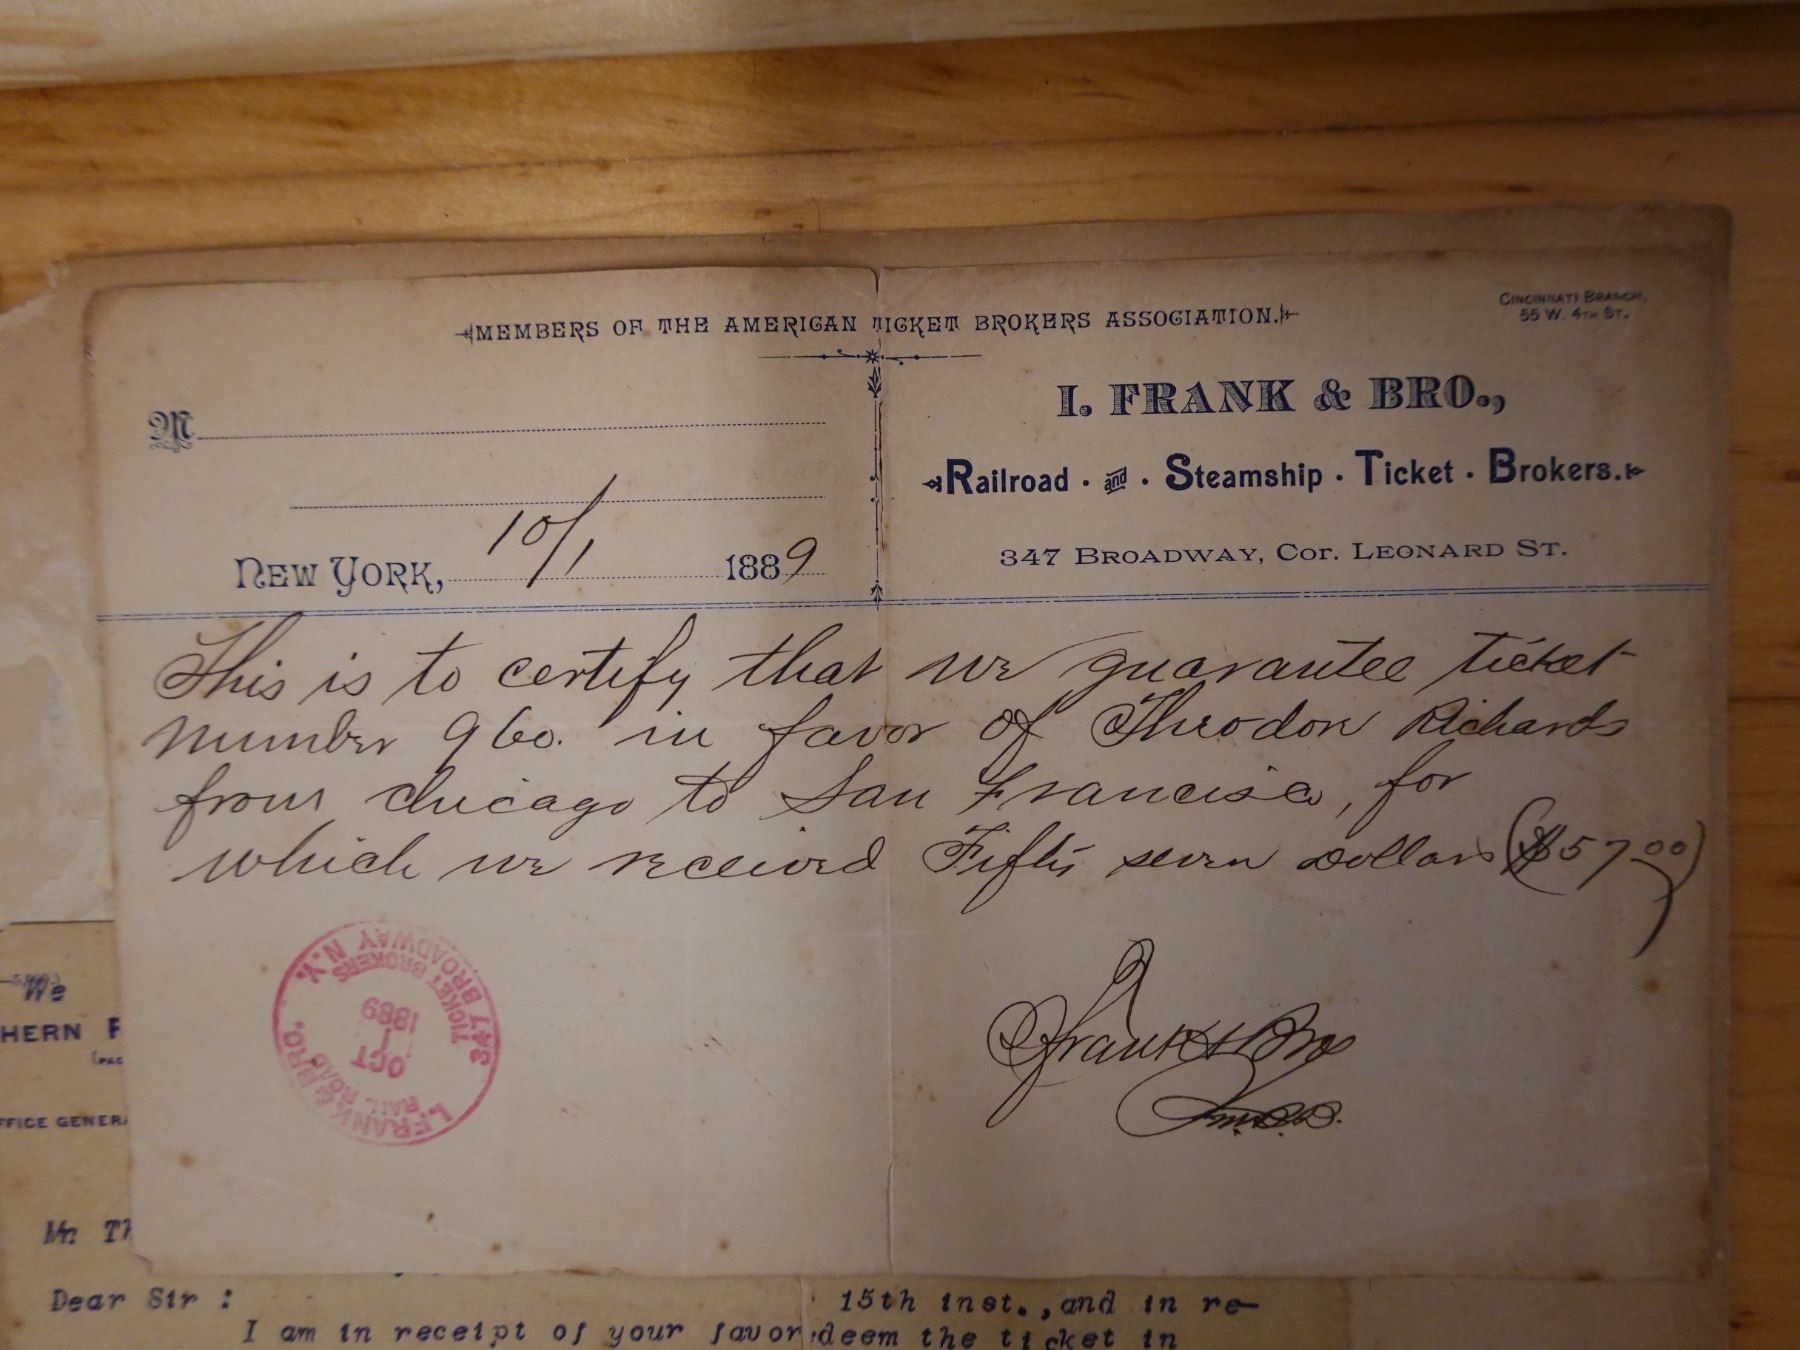 MEMBERS OF THE AMERICAN TICKET BROKERS ASSOCIATION.
CINCINNATI BRANCH,
55 W. 4TH ST.
M
I. FRANK & BRO.,
Railroad · and · Steamship · Ticket · Brokers.
347 BROADWAY, COR. LEONARD ST.
NEW YORK, 10/1 1889
This is to certify that we guarantee ticket
number 960. in favor of Theodore Richards
from chicago to San Francisco, for
which we received Fifty seven Dollars ($57.00)
I. FRANK & BRO.
RAIL ROAD
OCT
1
1889
TICKET BROKERS
347 BROADWAY N.Y.
I Frank & Bro
We
HERN
FFICE GENERA
Mr. Th
Dear Sir :
15th inst., and in re-
I am in receipt of your favor
deem the ticket in